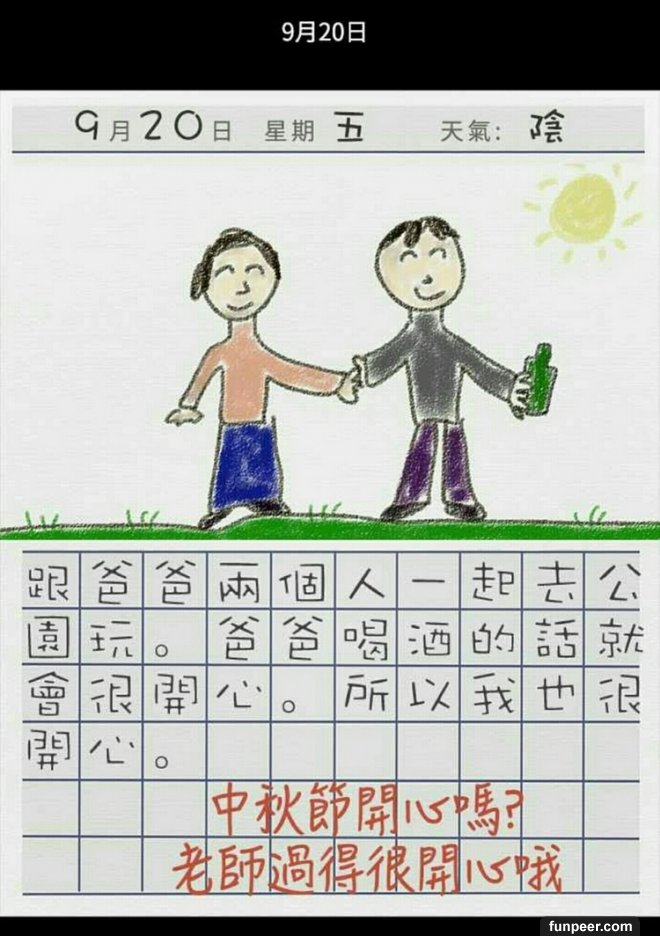 9月20日
9月20日 星期 五 天氣: 陰
跟爸爸兩個人一起去公
園玩。爸爸喝酒的話就
會很開心。所以我也很
開心。
中秋節開心嗎?
老師過得很開心哦
funpeer.com